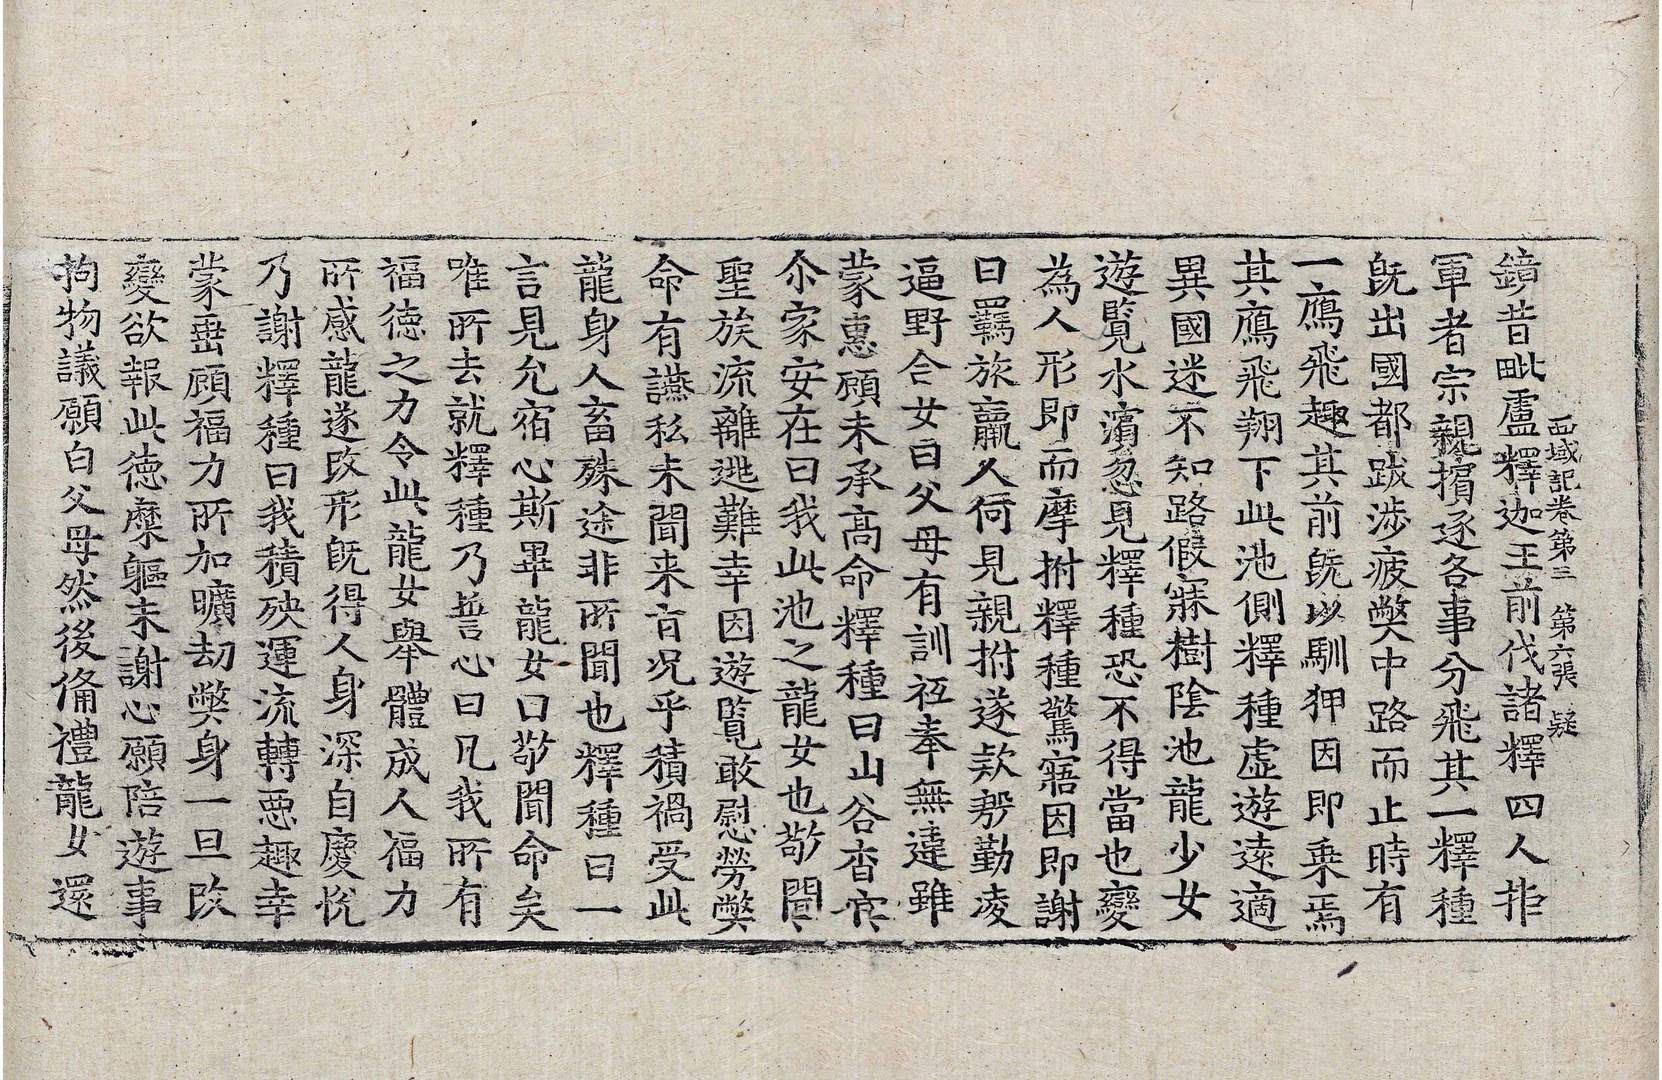 西域記卷第三　第六張　疑
鏡昔毗盧釋迦王前伐諸釋四人拒
軍者宗親擯逐各事分飛其一釋種
旣出國都跋涉疲弊中路而止時有
一鴈飛趣其前旣以馴狎因即乘焉
其鴈飛翔下此池側釋種虛遊遠適
異國迷不知路假寐樹陰池龍少女
遊覽水濱忽見釋種恐不得當也變
爲人形即而摩拊釋種驚寤因即謝
曰羇旅羸人何見親拊遂款懃凌
逼野合女曰父母有訓祗奉無違雖
蒙惠顧未承高命釋種曰山谷杳㝠
尒家安在曰我此池之龍女也敬聞
聖族流離逃難幸因遊覽敢慰勞弊
命有讌私未聞来旨況乎積禍受此
龍身人畜殊途非所聞也釋種曰一
言見允宿心斯畢龍女曰敬聞命矣
唯所去就釋種乃誓心曰凡我所有
福德之力令此龍女舉體成人福力
所感龍遂改形旣得人身深自慶悅
乃謝釋種曰我積殃運流轉惡趣幸
蒙垂顧福力所加曠劫弊身一旦改
變欲報此德糜軀未謝心願陪遊事
拘物議願白父母然後俻禮龍女還